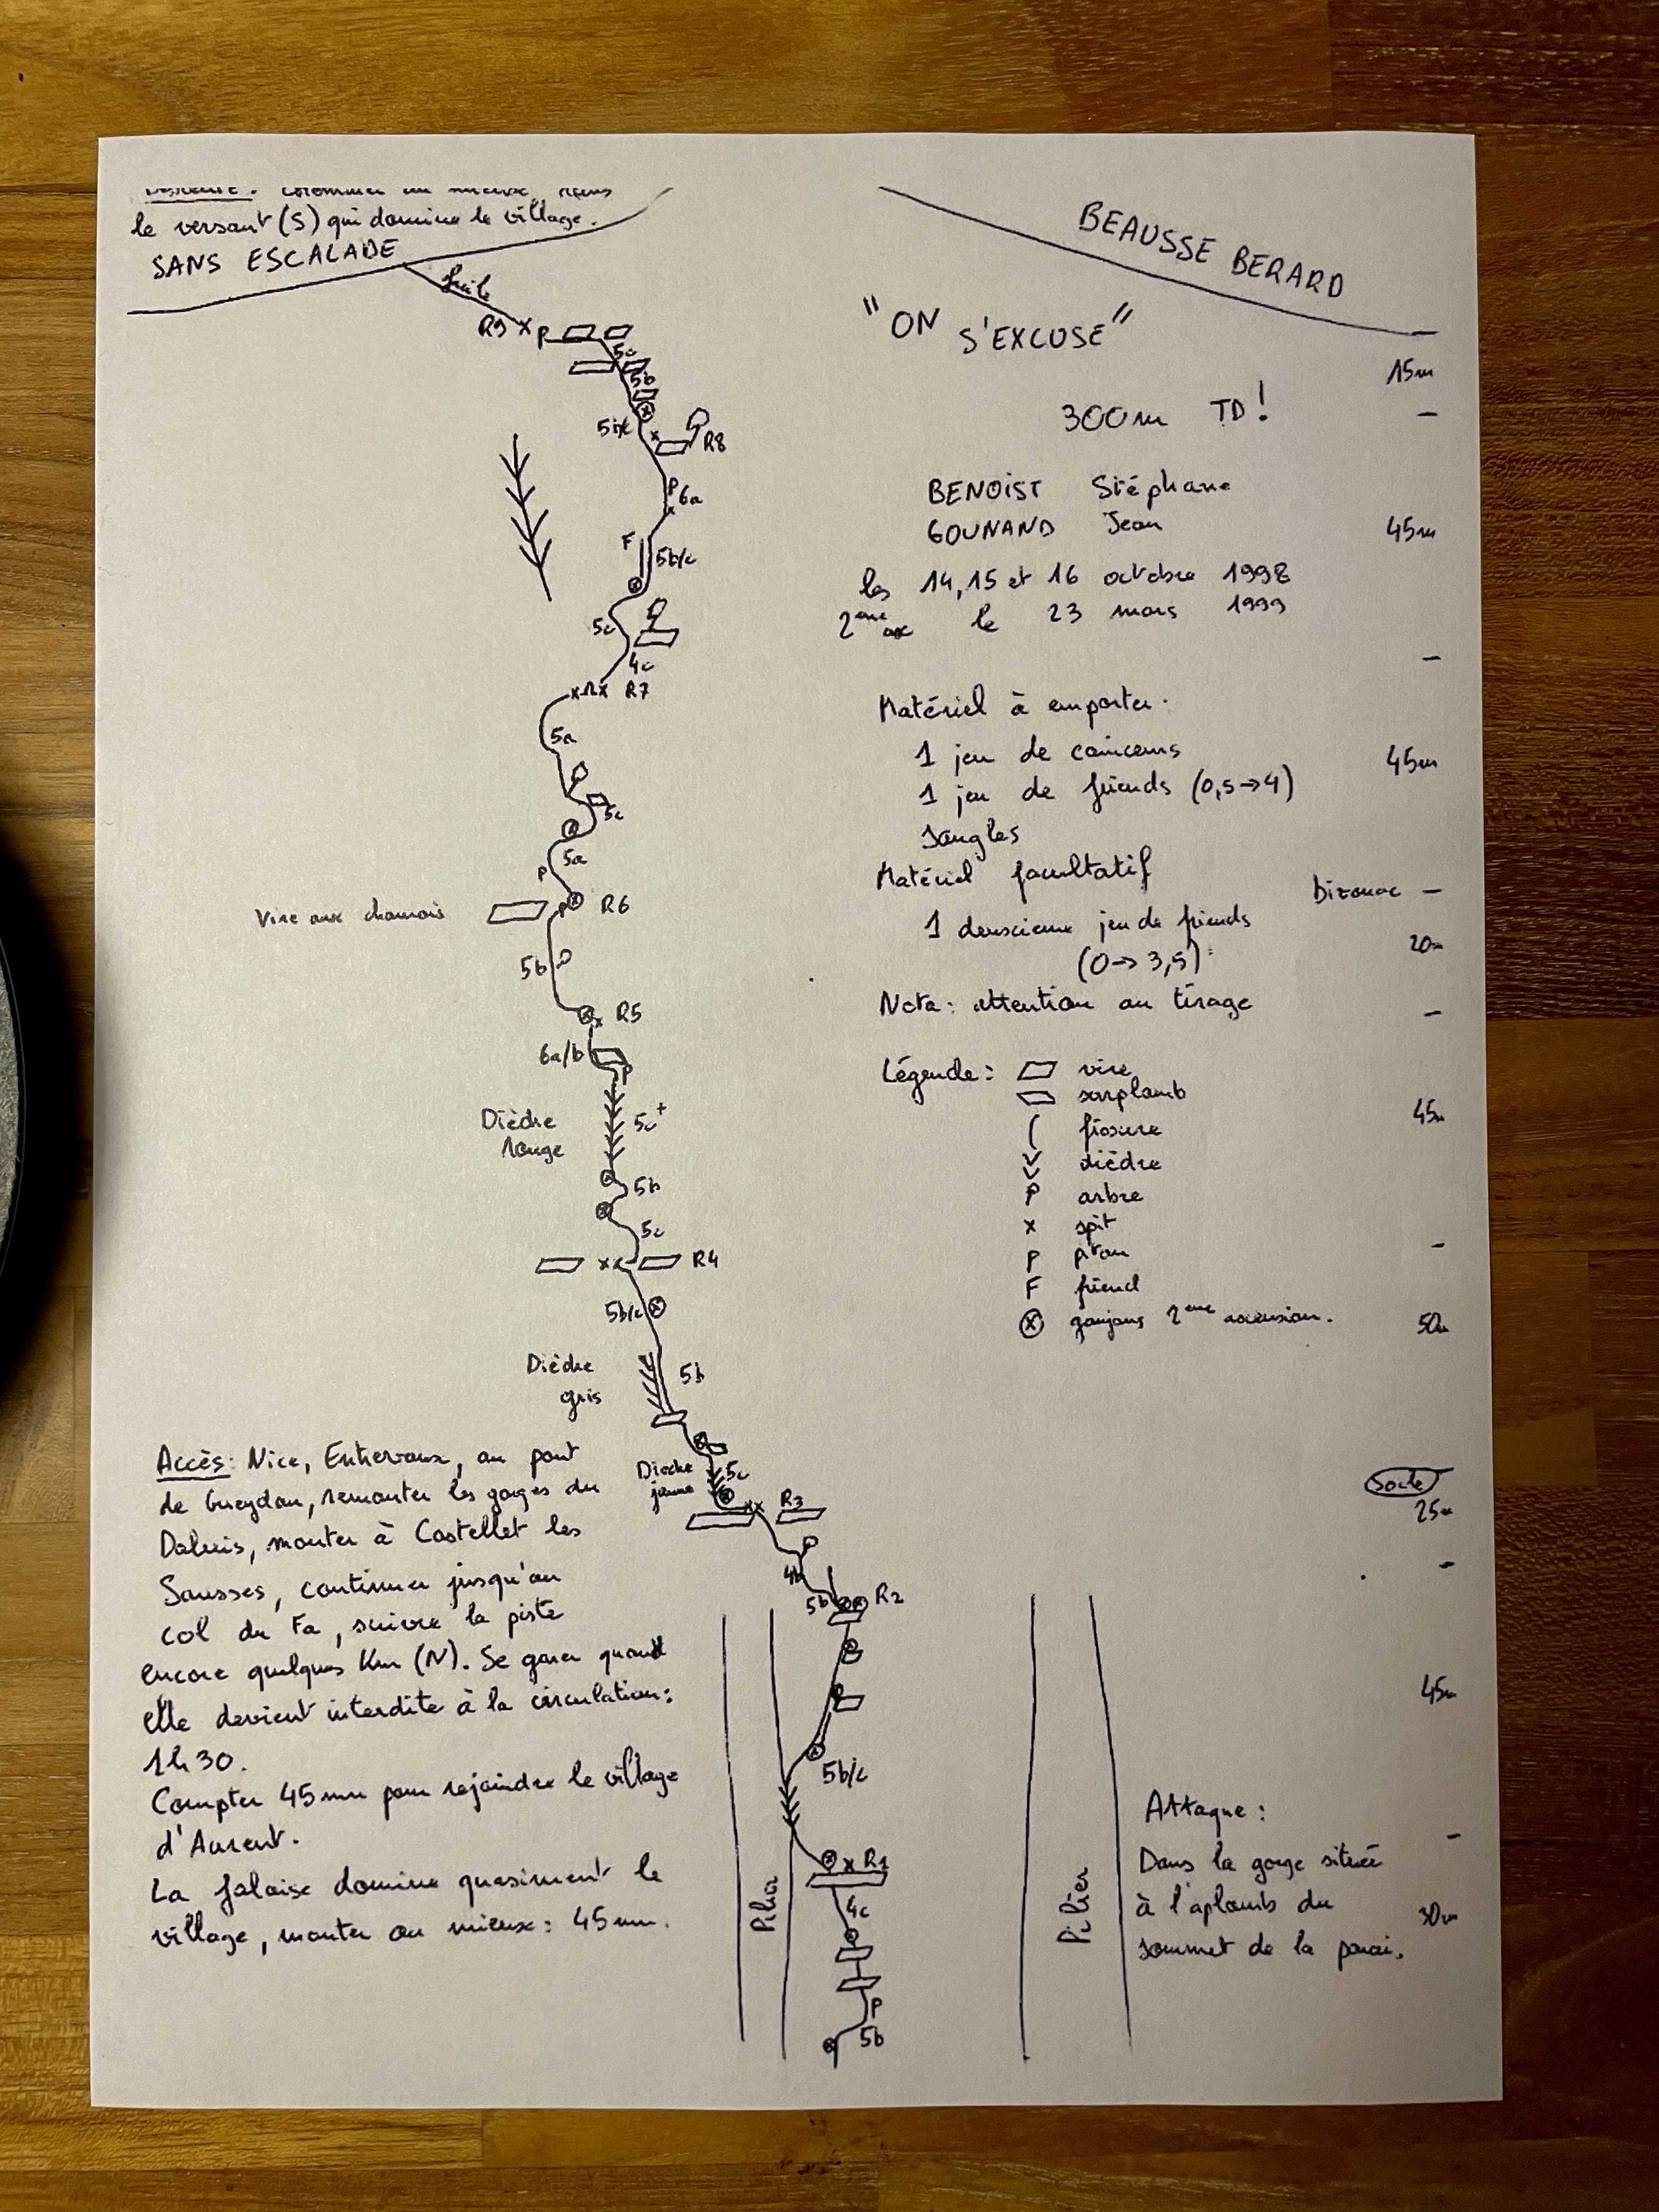 le versant (S) qui domine le village.
SANS ESCALADE
facile
BEAUSSE BERARD
"ON S'EXCUSE"
300m TD!
BENOIST Stéphane
GOUNAND Jean
les 14, 15 et 16 octobre 1998
2eme asc le 23 mars 1999
Matériel à emporter.
1 jeu de coinceurs
1 jeu de friends (0,5→4)
Sangles
Matériel facultatif
1 deuxieme jeu de friends
(0→3,5)
Nota: attention au tirage
Légende:
vire
surplomb
fissure
dièdre
P arbre
x spit
P piton
F friend
goujons 2eme ascension.
R9 x P
5c
5b
R8
P
6a
F
5b/c
5c
4c
R7
5a
5c
5a
P
Vire aux chamois
R6
5b
R5
6a/b
P
Dièdre
rouge
5c+
5b
5c
xx R4
5b/c
Dièdre
gris
5b
Dièdre
jaune
5c
xx R3
4b
5b
R2
5b/c
x R1
4c
P
5b
Pilier
Pilier
15m
45m
45m
Bizouac
20m
45m
50m
Socle
25m
45m
30m
Accès: Nice, Entrevaux, au pont
de Gueydan, remonter les gorges du
Daluis, monter à Castellet les
Sausses, continuer jusqu'au
col du Fa, suivre la piste
encore quelques Km (N). Se garer quand
elle devient interdite à la circulation:
1h30.
Compter 45mn pour rejoindre le village
d'Aurent.
La falaise domine quasiment le
village, monter au mieux: 45mn.
Attaque:
Dans la gorge située
à l'aplomb du
sommet de la paroi.